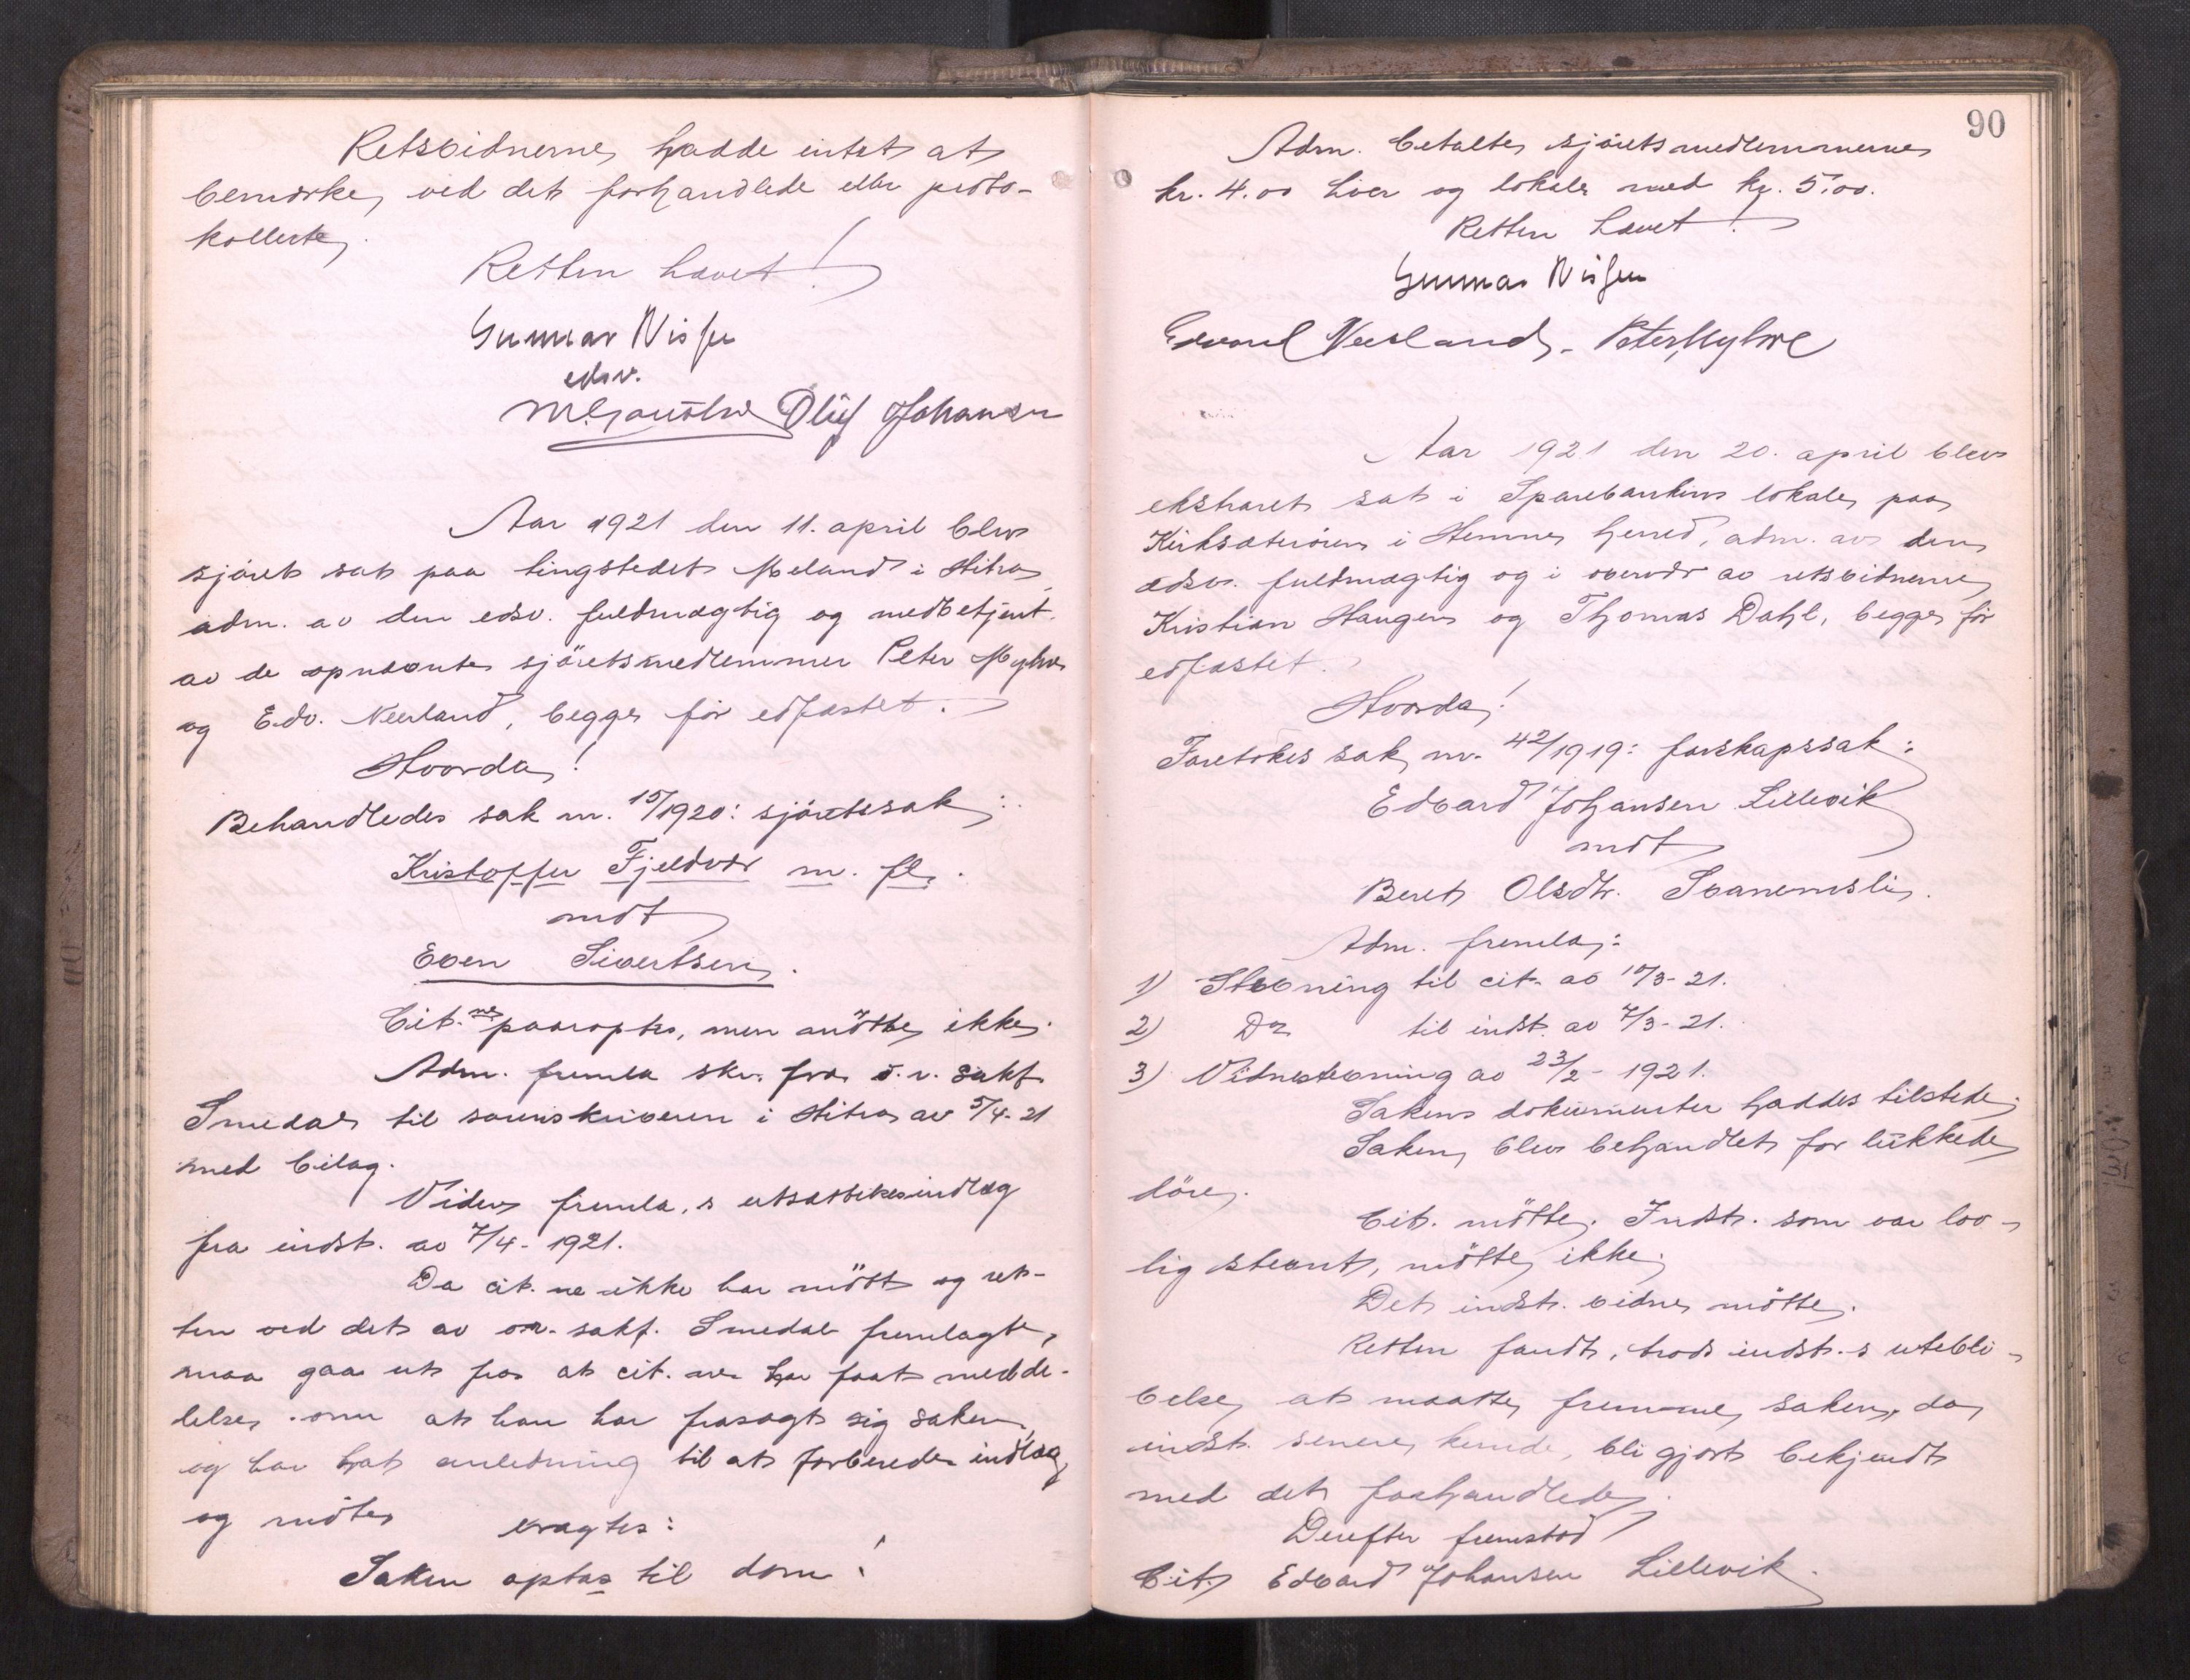 Retsvidnerne hadde intet at
bemærke ved det forhandlede eller proto-
kollerte.
Retten hævet!
Gunnar Nissen
edsv.
Oluf Johansen
Aar 1921 den 11. april blev
sjöret sat paa tingstedet Meland i Hitra,
adm. av den edsv. fuldmægtig og medbetjent
av de opnævnte sjöretsmedlemmer Peter Myhre
og Edv. Neerland, begge för edfæstet.
Hvorda!
Behandledes sak nr. 15/1920: sjöretssak:
Kristoffer Fjeldvær m. fl.
mot
Even Sivertsen.
Cit. ne paaroptes, men mötte ikke.
Adm. fremla skr. fra o.r. sakf.
Smedal til sorenskriveren i Hitra av 5/4-21
med bilag.
Videre fremla, s utsættelsesindlæg
fra indst. av 7/4-1921.
Da cit. ne ikke har mött og ret-
ten ved det av o.r. sakf. Smedal fremlagte,
maa gaa ut fra at cit. ne har faat medde-
lelse om at han har frasagt sig saken,
og har hat anledning til at forberede indlæg
og möte eragtes:
Saken optas til dom!
90
Adm. betalte sjöretsmedlemmerne
kr. 4.00 hver og lokale med kr. 5.00.
Retten hævet!
Gunnar Nissen
Edvard Neerland. Peter Myhre
Aar 1921 den 20. april blev
ekstraret sat i Sparebankens lokale paa
Kirksæterören i Hemne herred, adm. av den
edsv. fuldmægtig og i overvær av retsvidnerne
Kristian Haugen og Thomas Dahl, begge för
edfæstet.
Hvorda!
Foretokes sak nr. 42/1919: farskapssak:
Edvard Johansen Lillevik
mot
Beret Olsdtr. Svanemsli.
Adm. fremla:
1) Stevning til cit. av 15/3-21.
2) Do til indst. av 7/3-21.
3) Vidnestevning av 23/2-1921.
Sakens dokumenter haddes tilstede.
Saken blev behandlet for lukkede
döre.
Cit. mötte. Indst. som var lov-
lig stevnt, mötte ikke.
Det indst. vidne mötte.
Retten fandt, trods indst.s utebli-
velse at maatte fremme saken, da
indst. senere kunde bli gjort bekjendt
med det forhandlede.
Derefter fremstod
Cit. Edvard Johansen Lillevik.